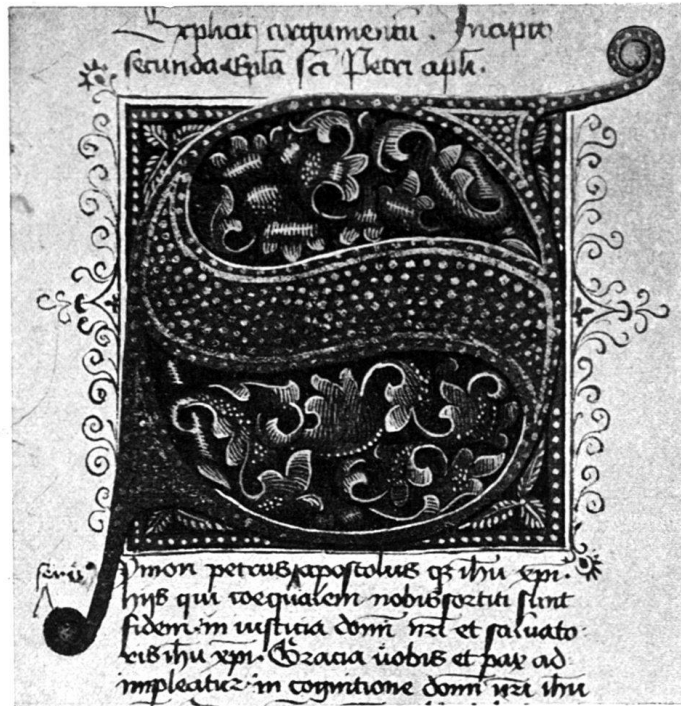 Explicit argumentū. Incipit
secunda Epl̄a sc̄i Petri apl̄i.
ymon petrus apostolus qꝫ ih̄u xp̄i.
seruꝰ
hijs qui coequalem nobis sortiti sunt
fidem in iusticia domī nr̄i et saluato
ris ih̄u xp̄i. Gracia uobis et pax ad
impleatur in cognitione domī nr̄i ih̄u